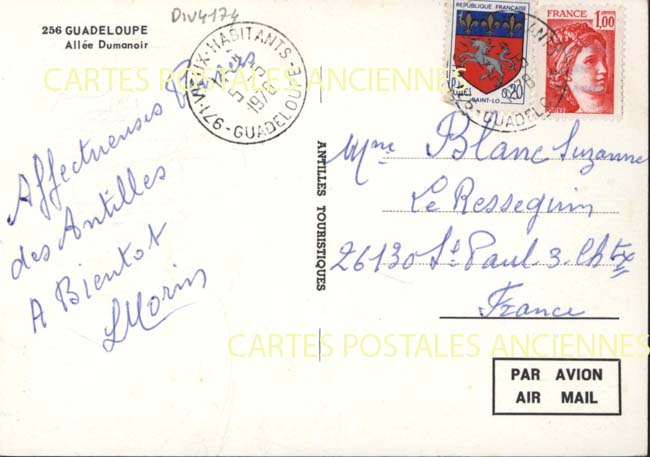 256 GUADELOUPE
Allée Dumanoir
Div4174
971-VIEUX-HABITANTS
1978
GUADELOUPE
RÉPUBLIQUE FRANÇAISE
0,20
SAINT-LO
FRANCE
1,00
1978
GUADELO
CARTES POSTALES ANCIENNES
Affectueuses Pensées
des Antilles
A Bientot
LMorin
ANTILLES TOURISTIQUES
Mme Blanc Suzanne
Le Resseguin
26130 St Paul 3 Chtx
France
CARTES POSTALES ANCIENNES
PAR AVION
AIR MAIL